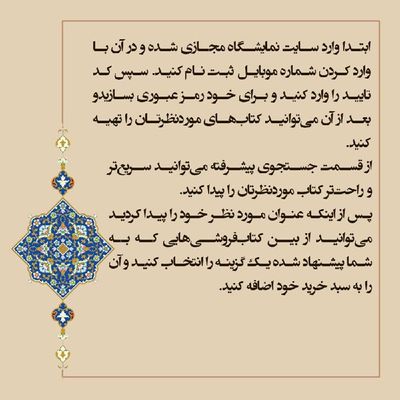 ابتدا وارد سایت نمایشگاه مجازی شده و در آن با
وارد کردن شماره موبایل ثبت نام کنید. سپس کد
تایید را وارد کنید و برای خود رمز عبوری بسازیدو
بعد از آن می‌توانید کتاب‌های موردنظرتان را تهیه
کنید.
از قسمت جستجوی پیشرفته می‌توانید سریع‌تر
و راحت‌تر کتاب موردنظرتان را پیدا کنید.
پس از اینکه عنوان مورد نظر خود را پیدا کردید
می‌توانید از بین کتاب‌فروشی‌هایی که به
شما پیشنهاد شده یک گزینه را انتخاب کنید و آن
را به سبد خرید خود اضافه کنید.